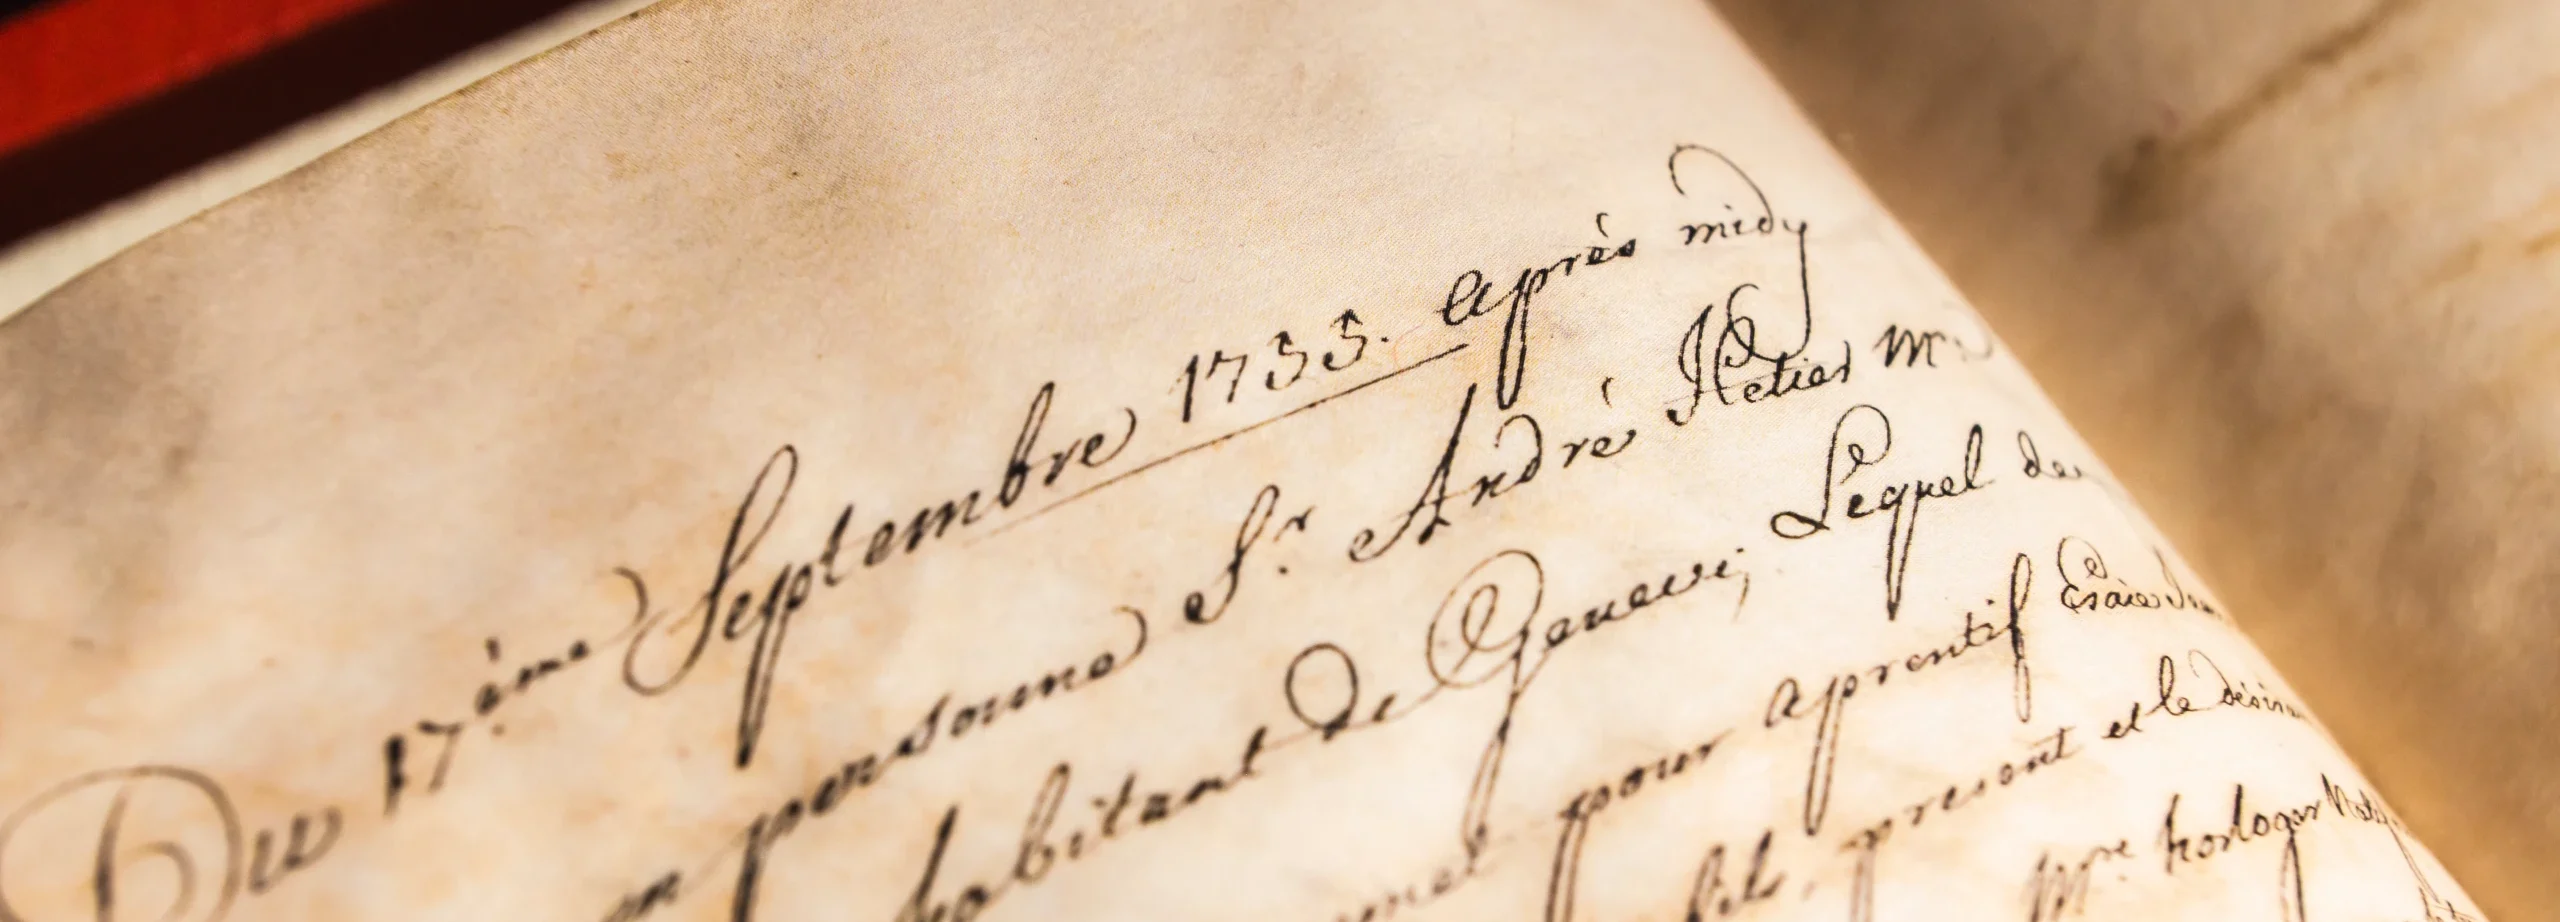 Du 17.ème Septembre 1755. après midy
en personne S.r André Hetier
habitant de Geneve; Lequel
pour aprentif Esaïe
fils, present et le
M.re horloger